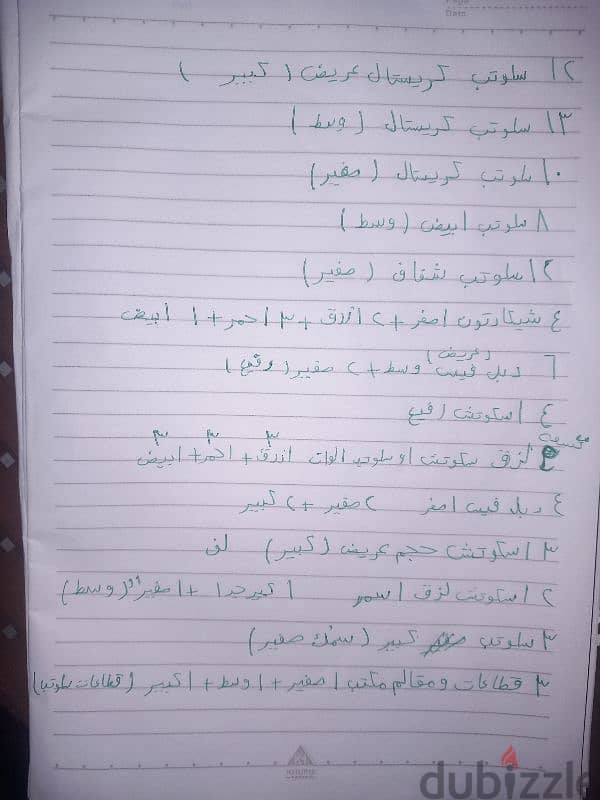 Page
Date
١٢ سلوتب كريستال عريض (كبير)
١٣ سلوتب كريستال (وسط)
١٠ سلوتب كريستال (صغير)
٨ سلوتب ابيض (وسط)
١٢ سلوتب شفاف (صغير)
٤ شيتارتون اصفر + ٢ ازرق + ٣ احمر + ١ أبيض
٦ دبل فيس (عريض) وسط + ٢ صغير (رفيع)
٤ اسكوتش رفيع
لزق سكوتش او سلوتب الوان ٣ ازرق + ٣ احمر + ٣ ابيض
٤ دبل فيس اصفر ٢ صغير + ٢ كبير
٣ اسكوتش حجم عريض (كبير) لف
٢ اسكوتش لزق اسمر ١ كبير جدا + ١ صغير او (وسط)
٣ سلوتب كبير (سمك صغير)
٣ قطاعات ومقالم مكتب ١ صغير + ١ وسط + ١ كبير (قطاعات سلوتب)
dubizzle